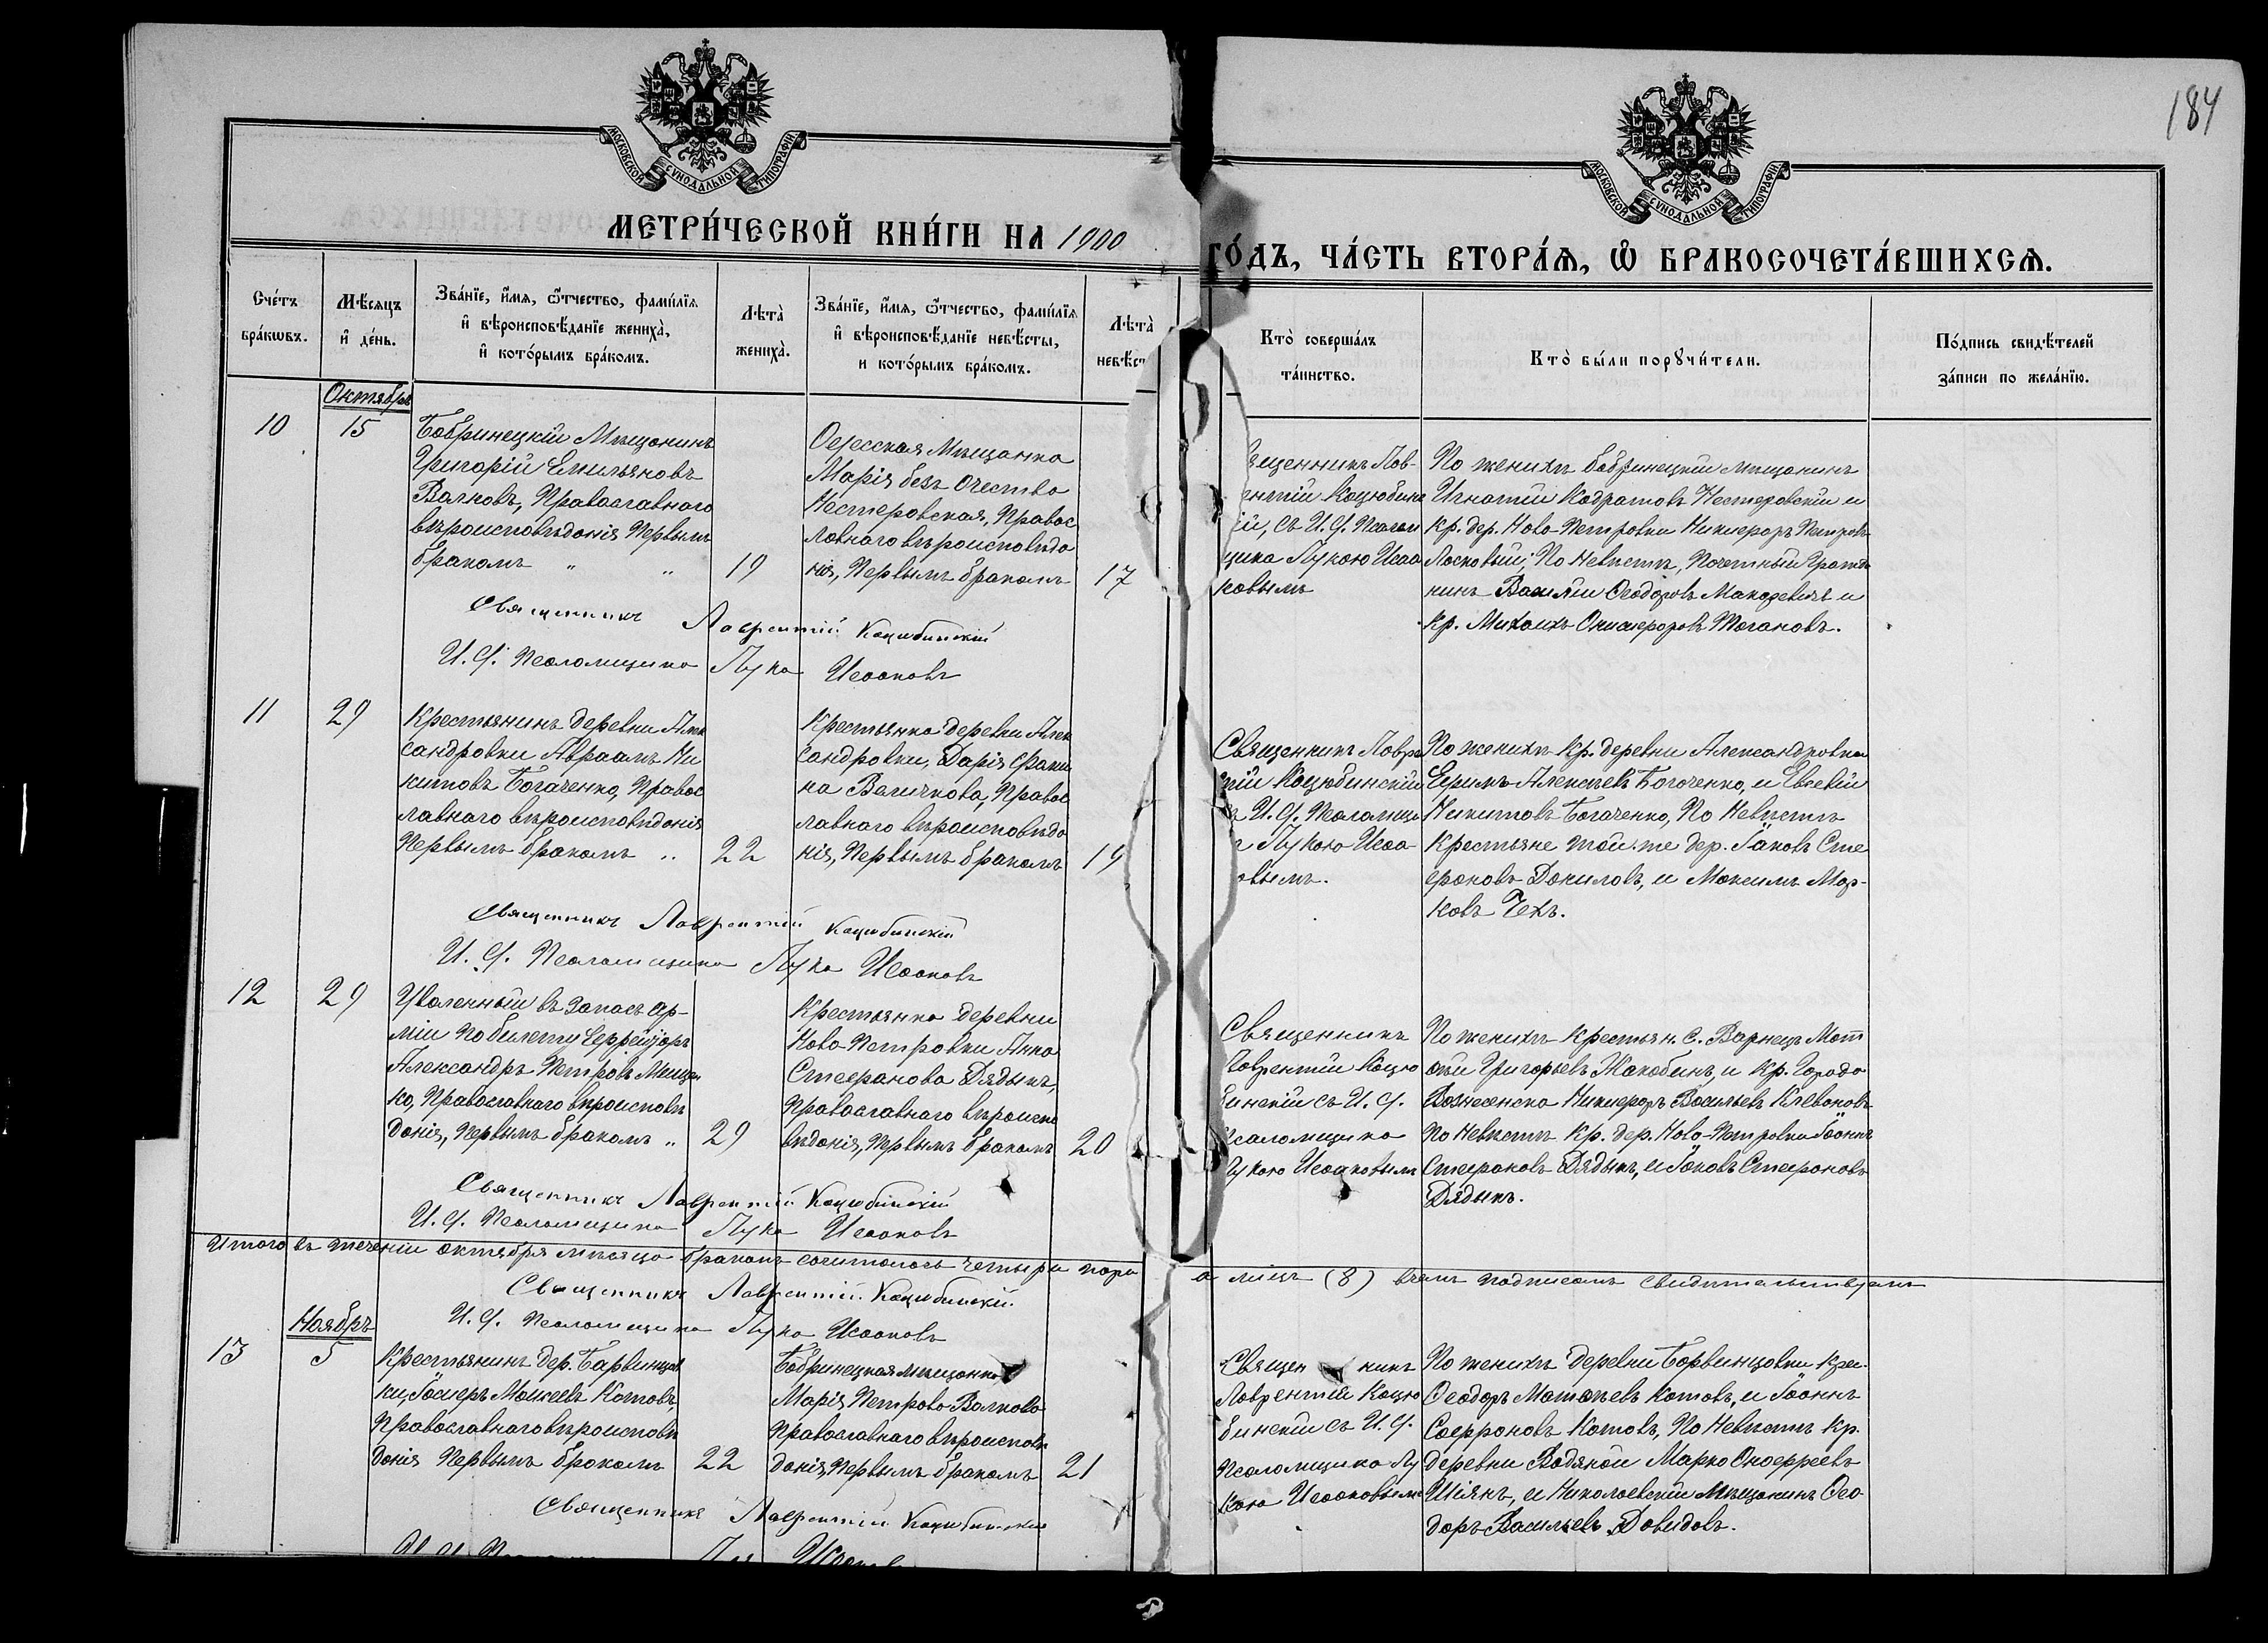 184
МОСКОВСКОЙ СѴНОДАЛЬНОЙ ТИПОГРАФІИ
МОСКОВСКОЙ СѴНОДАЛЬНОЙ ТИПОГРАФІИ
МЕТРИ́ЧЕСКОЙ КНИ́ГИ НА 1900
ГО́ДЪ, ЧА́СТЬ ВТОРА́Ѧ, Ѽ БРАКОСОЧЕТА́ВШИХСѦ.
Сче́тъ
бра́кѡвъ.
Мѣ́сяцъ
и҆ де́нь.
Зва́нїе, и҆́мѧ, ѻ҆́тчество, фами́лїѧ
и҆ вѣроисповѣ́данїе жениха̀,
и҆ кото́рымъ бра́комъ.
Лѣта̀
жениха̀.
Зва́нїе, и҆́мѧ, ѻ҆́тчество, фами́лїѧ
и҆ вѣроисповѣ́данїе невѣ́сты,
и кото́рымъ бра́комъ.
Лѣта̀
невѣ́ст
Кто̀ соверша́лъ
та́инство.
Кто̀ бы́ли порꙋчи́тели.
По́дпись свидѣ́телей
за́писи по жела́нїю.
Октябрь
10
15
Бобринецкій Мѣщанинъ
Григорій Емильяновъ
Валковъ, Православнаго
вѣроисповѣданія Первымъ
бракомъ " "
19
Одесская Мѣщанка
Марія безъ Очества
Нестеровская, Правос
лавнаго вѣроисповѣда
нія, Первымъ бракомъ
17
щенникъ Лав-
ентій Коцюбинс
ій, съ И. Д. Псалом
щика Лукою Исаа
ковымъ
По женихѣ бобринецкій мѣщанинъ
Игнатій Кодратовъ Нестеровскій и
Кр. дер. Ново-Петровки Никифоръ Петровъ
Лосковый; По Невѣстѣ, Почетный Гражда
нинъ Василій Ѳеодоровъ Макаревичъ и
Кр. Михаилъ Онисифоровъ Тогановъ.
Священникъ Лаврентій Коцюбинскій
И. Д. Псаломщика Лука Исааковъ
11
29
Крестьянинъ деревни Алек
сандровки Авраамъ Ни
китовъ Богаченко, Правос
лавнаго вѣроисповѣданія
Первымъ бракомъ "
22
Крестьянка деревни Алек
сандровки, Дарія Фоми
на Величкова, Правос
лавнаго вѣроисповѣда
нія, Первымъ бракомъ
19
Священникъ Лавре
тій Коцюбинскій
ъ И. Д. Псаломщи
а Лукою Исаа-
овымъ.
По женихѣ Кр. деревни Александровки
Ефимъ Алексѣевъ Богаченко, и Евсевій
Никитовъ Богаченко, По Невѣстѣ
Крестьяне той-же дер. Іаковъ Сте
фановъ Даниловъ, и Максимъ Мар-
ковъ Чехъ.
Священникъ Лаврентій Коцюбинскій
И. Д. Псаломщика Лука Исааковъ
12
29
Уволенный въ запасъ ар-
міи по билету Ефрейторъ
Александръ Петровъ Мищен
ко, Православнаго вѣроисповѣ
данія, Первымъ бракомъ "
29
Крестьянка деревни
Ново-Петровки Анна
Стефанова Дядыкъ,
Православнаго вѣроиспо
вѣданія, Первымъ бракомъ
20
Священникъ
Лаврентій Коцю
бинскій съ И. Д.
Псаломщика
Лукою Исааковымъ
По женихѣ Крестьян. С. Варнецъ Мат
фей Григорьевъ Жакобинъ, и Кр. Города
Вознесенска Никифоръ Васильевъ Клевановъ
По Невѣстѣ Кр. дер. Ново-Петровки Іоаннъ
Стефановъ Дядыкъ, и Іаковъ Стефановъ
Дядыкъ.
Священникъ Лаврентій Коцюбинскій
И. Д. Псаломщика Лука Исааковъ
Итого въ теченіи октября мѣсяца бракомъ сочиталось четыре пары
а лицъ (8) в чемъ подписомъ свидѣтельствуемъ
Священникъ Лаврентій Коцюбинскій
И. Д. Псаломщика Лука Исааковъ
Ноябрь
13
5
Крестьянинъ дер. Барвинцов
ки, Іосифъ Моисеевъ Котовъ,
Православнаго вѣроисповѣ
данія Первымъ бракомъ
22
Бобринецкая мѣщанка
Марія Петрова Валкова
Православнаго вѣроисповѣ
данія, Первымъ бракомъ
21
Священникъ
Лаврентій Коцю
бинскій съ И. Д.
Псаломщика Лу
кою Исааковымъ
По женихѣ деревни Борвинцовки Крес.
Ѳеодоръ Матѳѣевъ Котовъ, и Іоаннъ
Софроновъ Котовъ, По Невѣстѣ Кр.
деревни Водяной Марко Онофреевъ
Шіянъ, и Николаевскій Мѣщанинъ Ѳео
доръ Васильевъ Давидовъ.
Священникъ Лаврентій Коцюбинскій